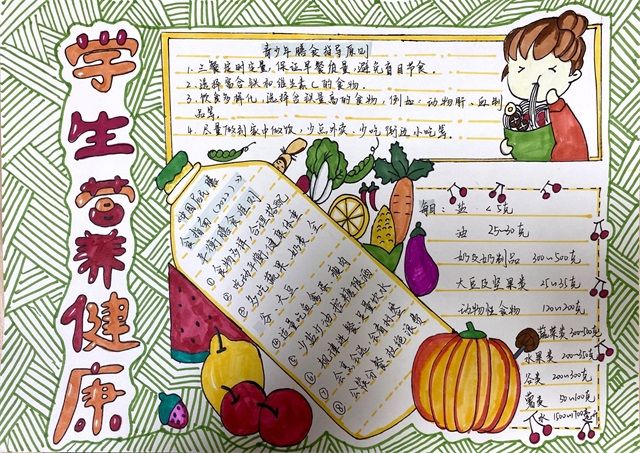 学生营养健康
青少年膳食指导原则
1. 三餐定时定量,保证早餐质量,避免盲目节食.
2. 选择富含铁和维生素C的食物.
3. 饮食多样化,选择含铁量高的食物,例如:动物肝、血制
品等.
4. 尽量做到家中做饭,少点外卖,少吃街边小吃等.
中国居民膳
食指南(2022)
平衡膳食准则
①食物多样,合理搭配
②吃动平衡,健康体重
③多吃蔬果、奶类、全
谷、大豆
④适量吃鱼禽蛋瘦肉
⑤少盐少油,控糖限酒
⑥规律进餐,足量饮水
⑦会烹会选,会看标签
⑧公筷分餐,杜绝浪费
每日: 盐 <5克
油 25~30克
奶及奶制品 300~500克
大豆及坚果类 25~35克
动物性食物 120~200克
蔬菜类 300~500克
水果类 200~350克
谷类 200~300克
薯类 50~100克
水 1500~1700毫升